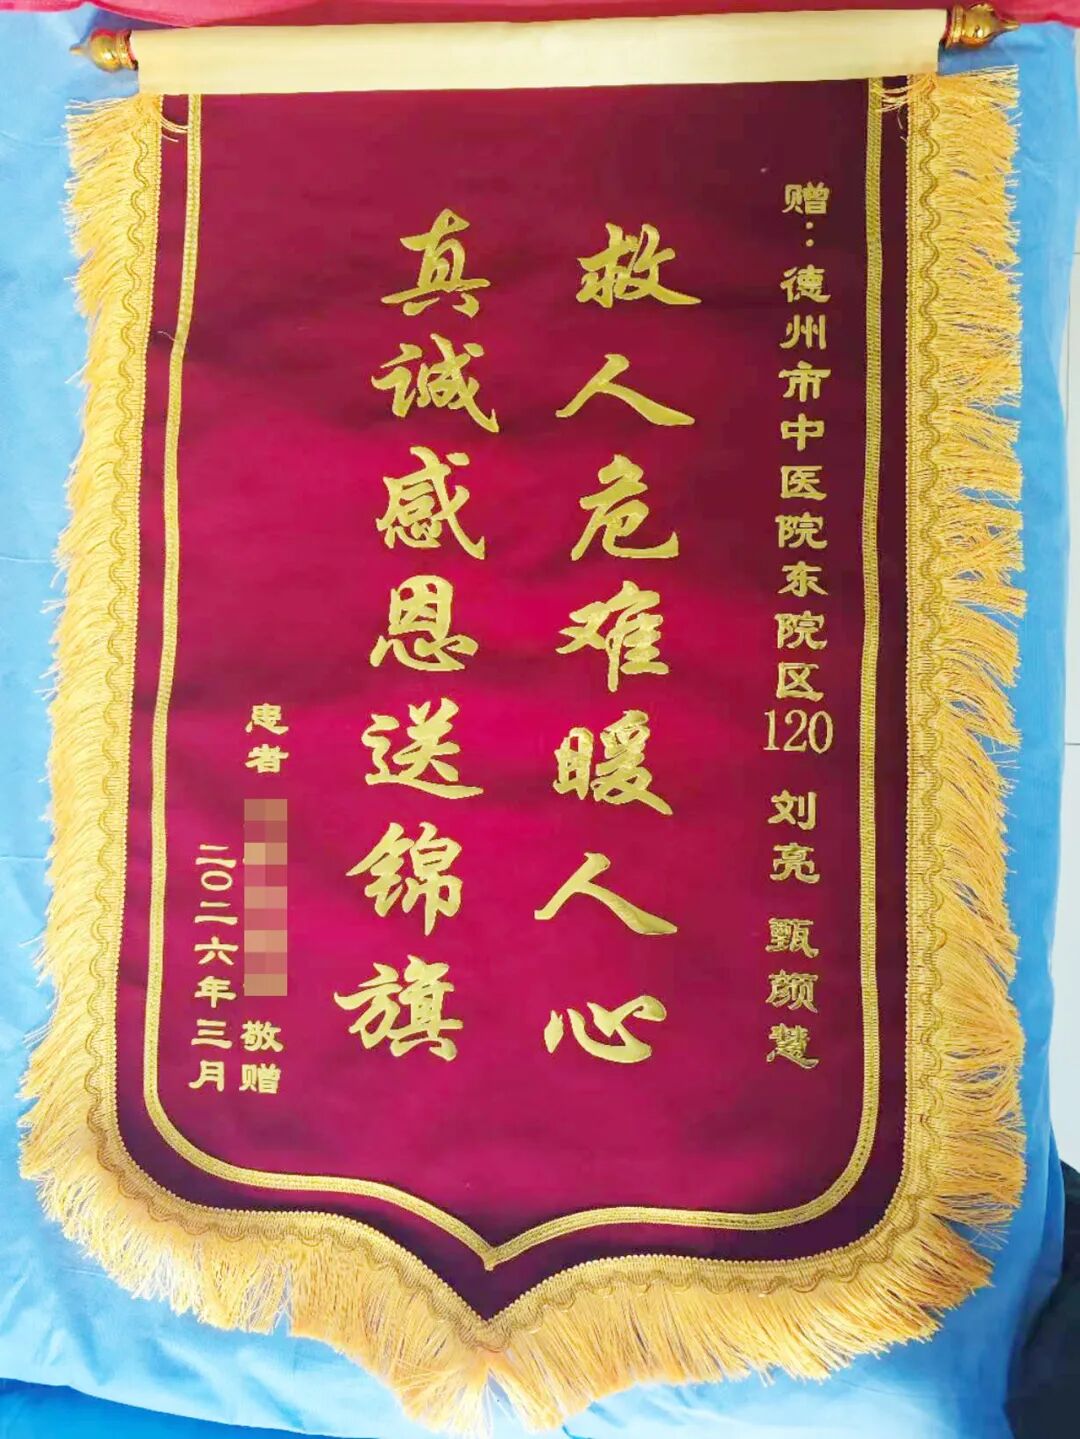 赠：德州市中医院东院区120 刘亮 甄颜慧
救人危难暖人心
真诚感恩送锦旗
患者 敬赠
二〇二六年三月